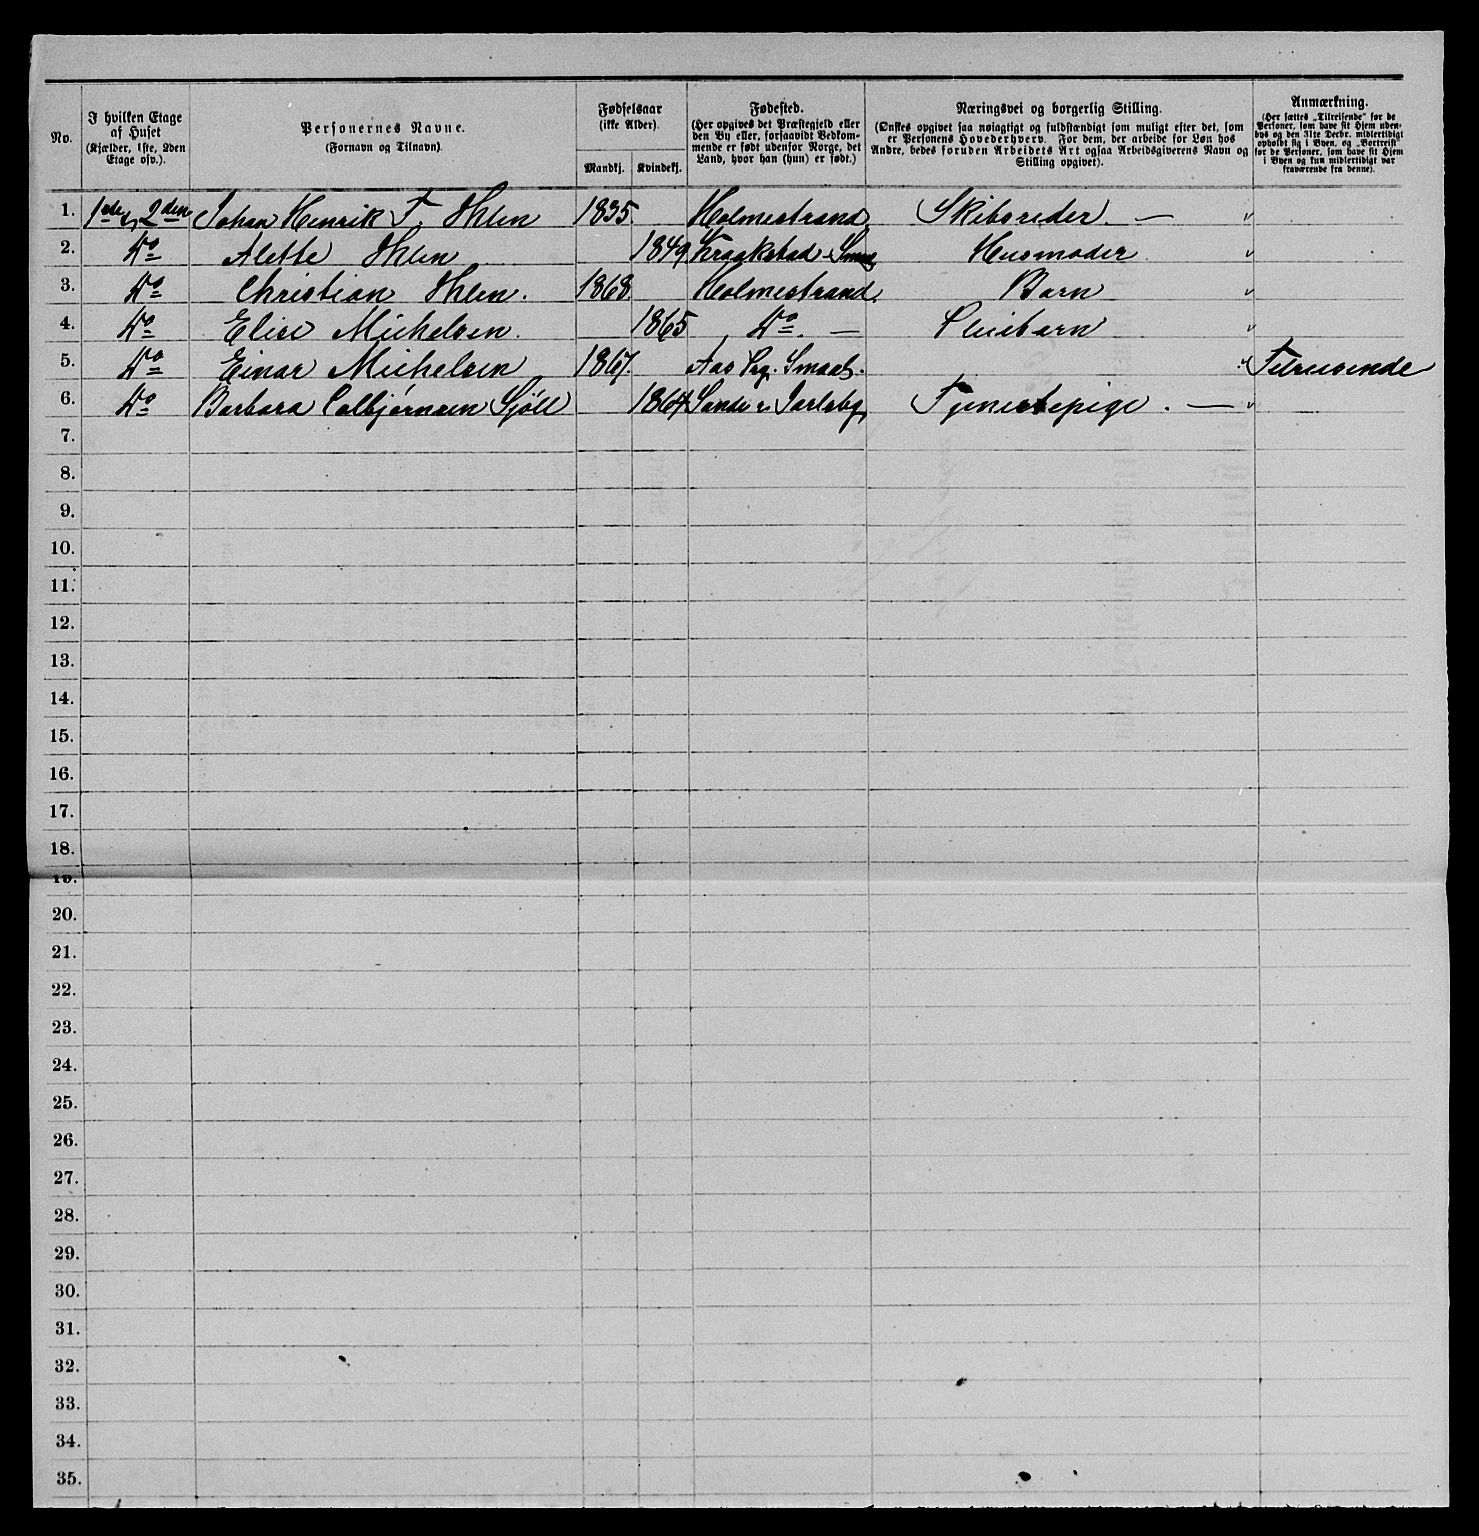 No.
I hvilken Etage
af Huset
(Kjælder, 1ste, 2den
Etage osv.).
Personernes Navne.
(Fornavn og Tilnavn).
Fødselsaar
(ikke Alder).
Mandkj. Kvindekj.
Fødested.
(Her opgives det Præstegjeld eller
den By eller, forsaavidt Vedkom-
mende er født udenfor Norge, det
Land, hvor han (hun) er født.)
Næringsvei og borgerlig Stilling.
(Ønskes opgivet saa nøiagtigt og fuldstændigt som muligt efter det, som
er Personens Hovederhverv. For dem, der arbeide for Løn hos
Andre, bedes foruden Arbeidets Art ogsaa Arbeidsgiverens Navn og
Stilling opgivet).
Anmærkning.
(Her sættes „Tilreisende“ for de
Personer, som have sit Hjem uden-
bys og den 31te Decbr. midlertidigt
opholdt sig i Byen, og „Bortreist“
for de Personer, som have sit Hjem
i Byen og kun midlertidigt var
fraværende fra denne).
1. 1ste & 2den Johan Henrik F. Ihlen 1835. Holmestrand Skibsreder. — "
2. Do Alette Ihlen 1849 Kraakstad Husmoder "
3. Do Christian Ihlen. 1868. Holmestrand. Barn "
4. Do Elise Michelsen. 1865 Do — Pleiebarn "
5. Do Einar Michelsen 1867. Aas Prg. Smaal. " Tilreisende
6. Do Barbara Colbjørnsen Sjöll 1864 Sande v. Jarlsbg, Tjenestepige. — "
7.
8.
9.
10.
11.
12.
13.
14.
15.
16.
17.
18.
19.
20.
21.
22.
23.
24.
25.
26.
27.
28.
29.
30.
31.
32.
33.
34.
35.